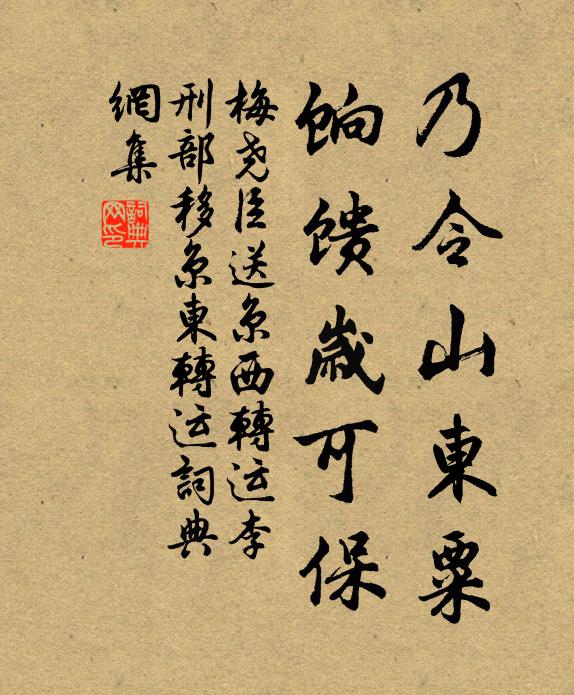 乃令山東粟
餉馈歲可保
梅尧臣送京西轉运李
刑部移京東轉运詞典
網集
詞典网印